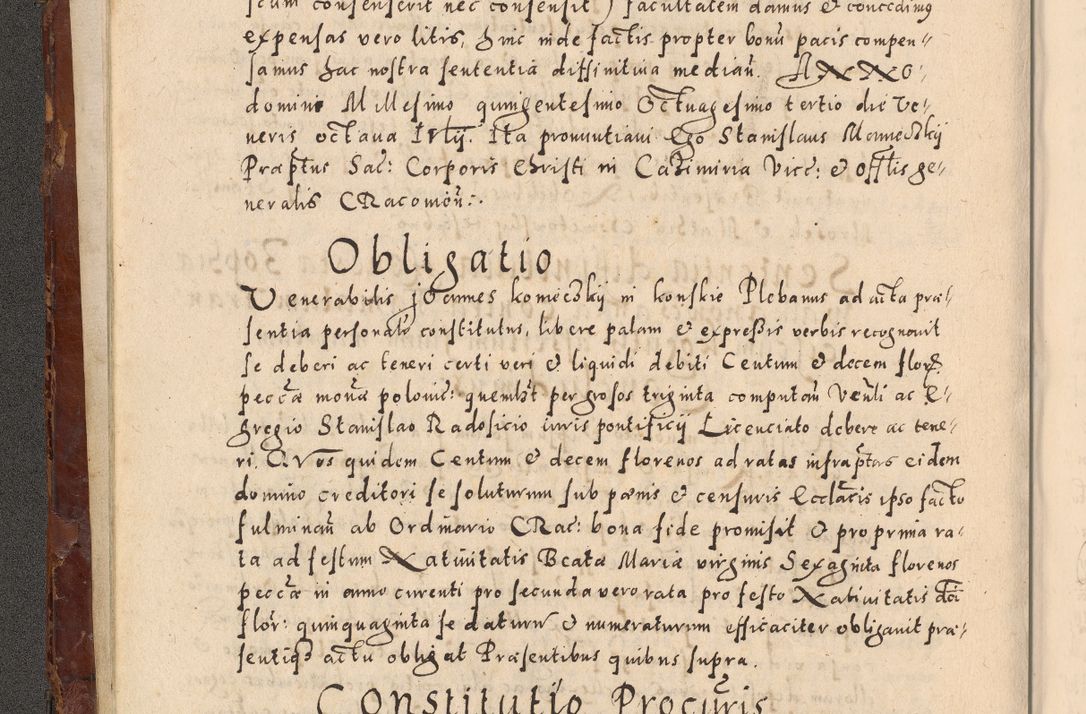 scum consenserit nec consensit) facultatem damus & concedimus
expensas vero litis, hinc inde factis propter bonū pacis compen"
samus hac nostra sententia diffinitiva median̄. ANNO
domini Millesimo quingentesimo Octuagesimo tertio die Ve"
neris octava Ita pronuntiavi Ego Stanislaus
Præptus Sac: Corporis Christi in Casimiria Vice: & Offlis ge"
neralis CRacovien̄:.
Obligatio
Venerabilis Joannes komeczkÿ in konskie Plebanus ad acta præ"
sentia personalr̄ constitutus, libere palam & expressis verbis recognovit
se deberi ac teneri certi veri & liquidi debiti Centum & decem flor
peccæ monæ polonic: quemlibt per grosos triginta computan̄ Venli ac E"
gregio Stanislao Radosicio iuris pontificÿ Licenciato debere ac tene"
ri. Quos quidem Centum & decem florenos ad ratas infraptas eidem
domino creditori se soluturum sub pænis & censuris Ecclacis ipso facto
fulminan̄ ab Ordinario CRac: bona fide promisit & pro prima ra"
ta ad festum Nativitatis Beatæ Mariæ virginis Sexaginta florenos
peccæ in anno curenti pro secunda vero rata pro festo Nativitatis dn̄i
flor: quinquaginta se daturū & numeraturum efficaciter obligavit præ"
sentiqz actu obligat Præsentibus quibus supra.
Constitutio Procūris